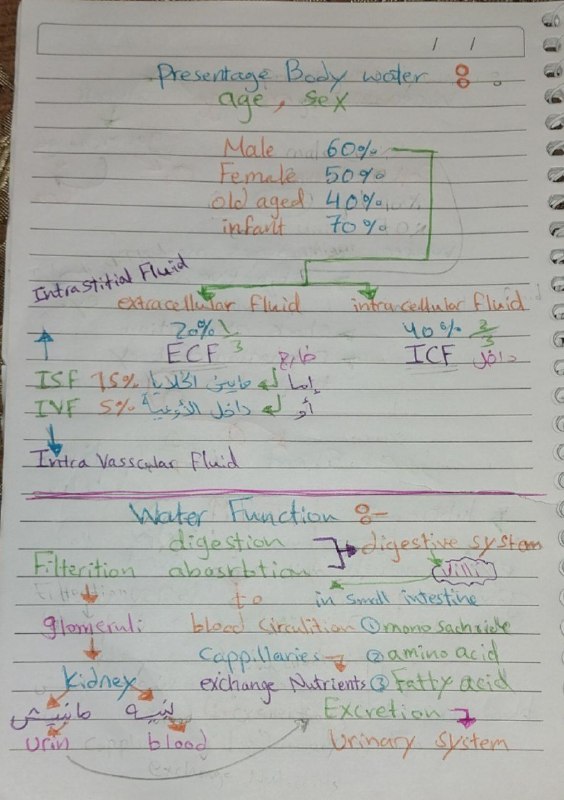 / /
Presentage Body water :
age, sex
Male 60%
Female 50%
old aged 40%
infant 70%
Intrastitial Fluid
extracellular fluid intracellular fluid
20% 1/3 40% 2/3
ECF خارج ICF داخل
ISF 15% إما مابين الخلايا
IVF 5% أو داخل الأوعية
Intra Vasscular Fluid
Water Function :-
digestion digestive system
Filterition abosrbtion Villi
to in small intestine
glomeruli blood circulition ① mono sachride
Kidney cappillaries ② amino acid
exchange Nutrients ③ Fatty acid
Excretion
urin blood urinary system